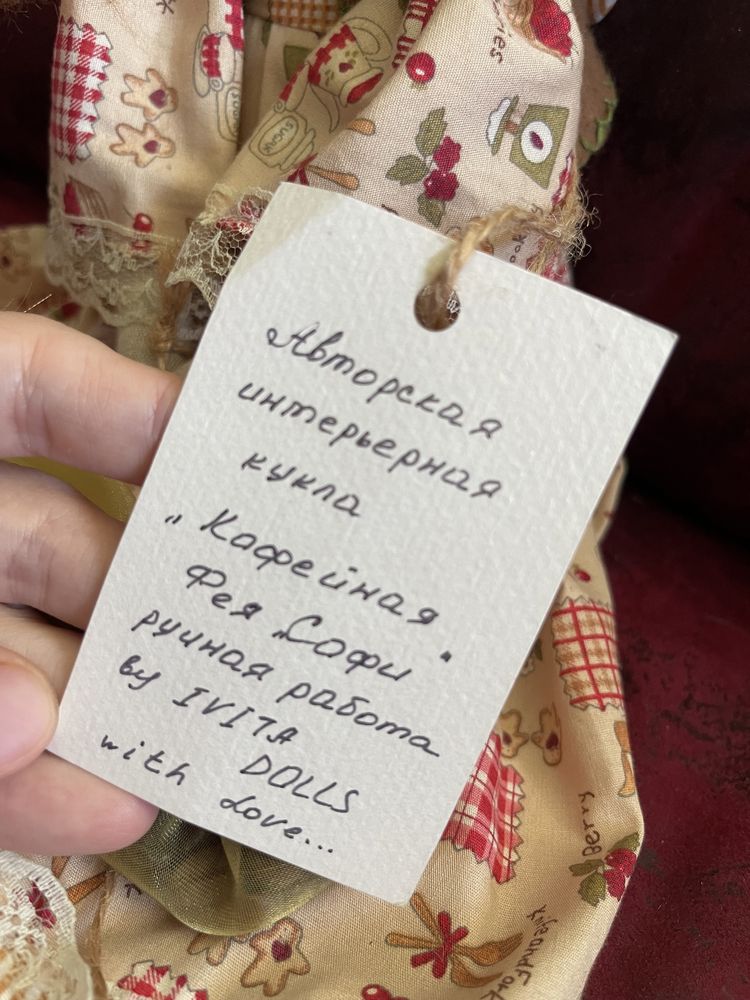 Авторская
интерьерная
кукла
„Кафейная
Фея „Софи"
ручная работа
by IVITA
DOLLS
with love...
SUGAR
Berry